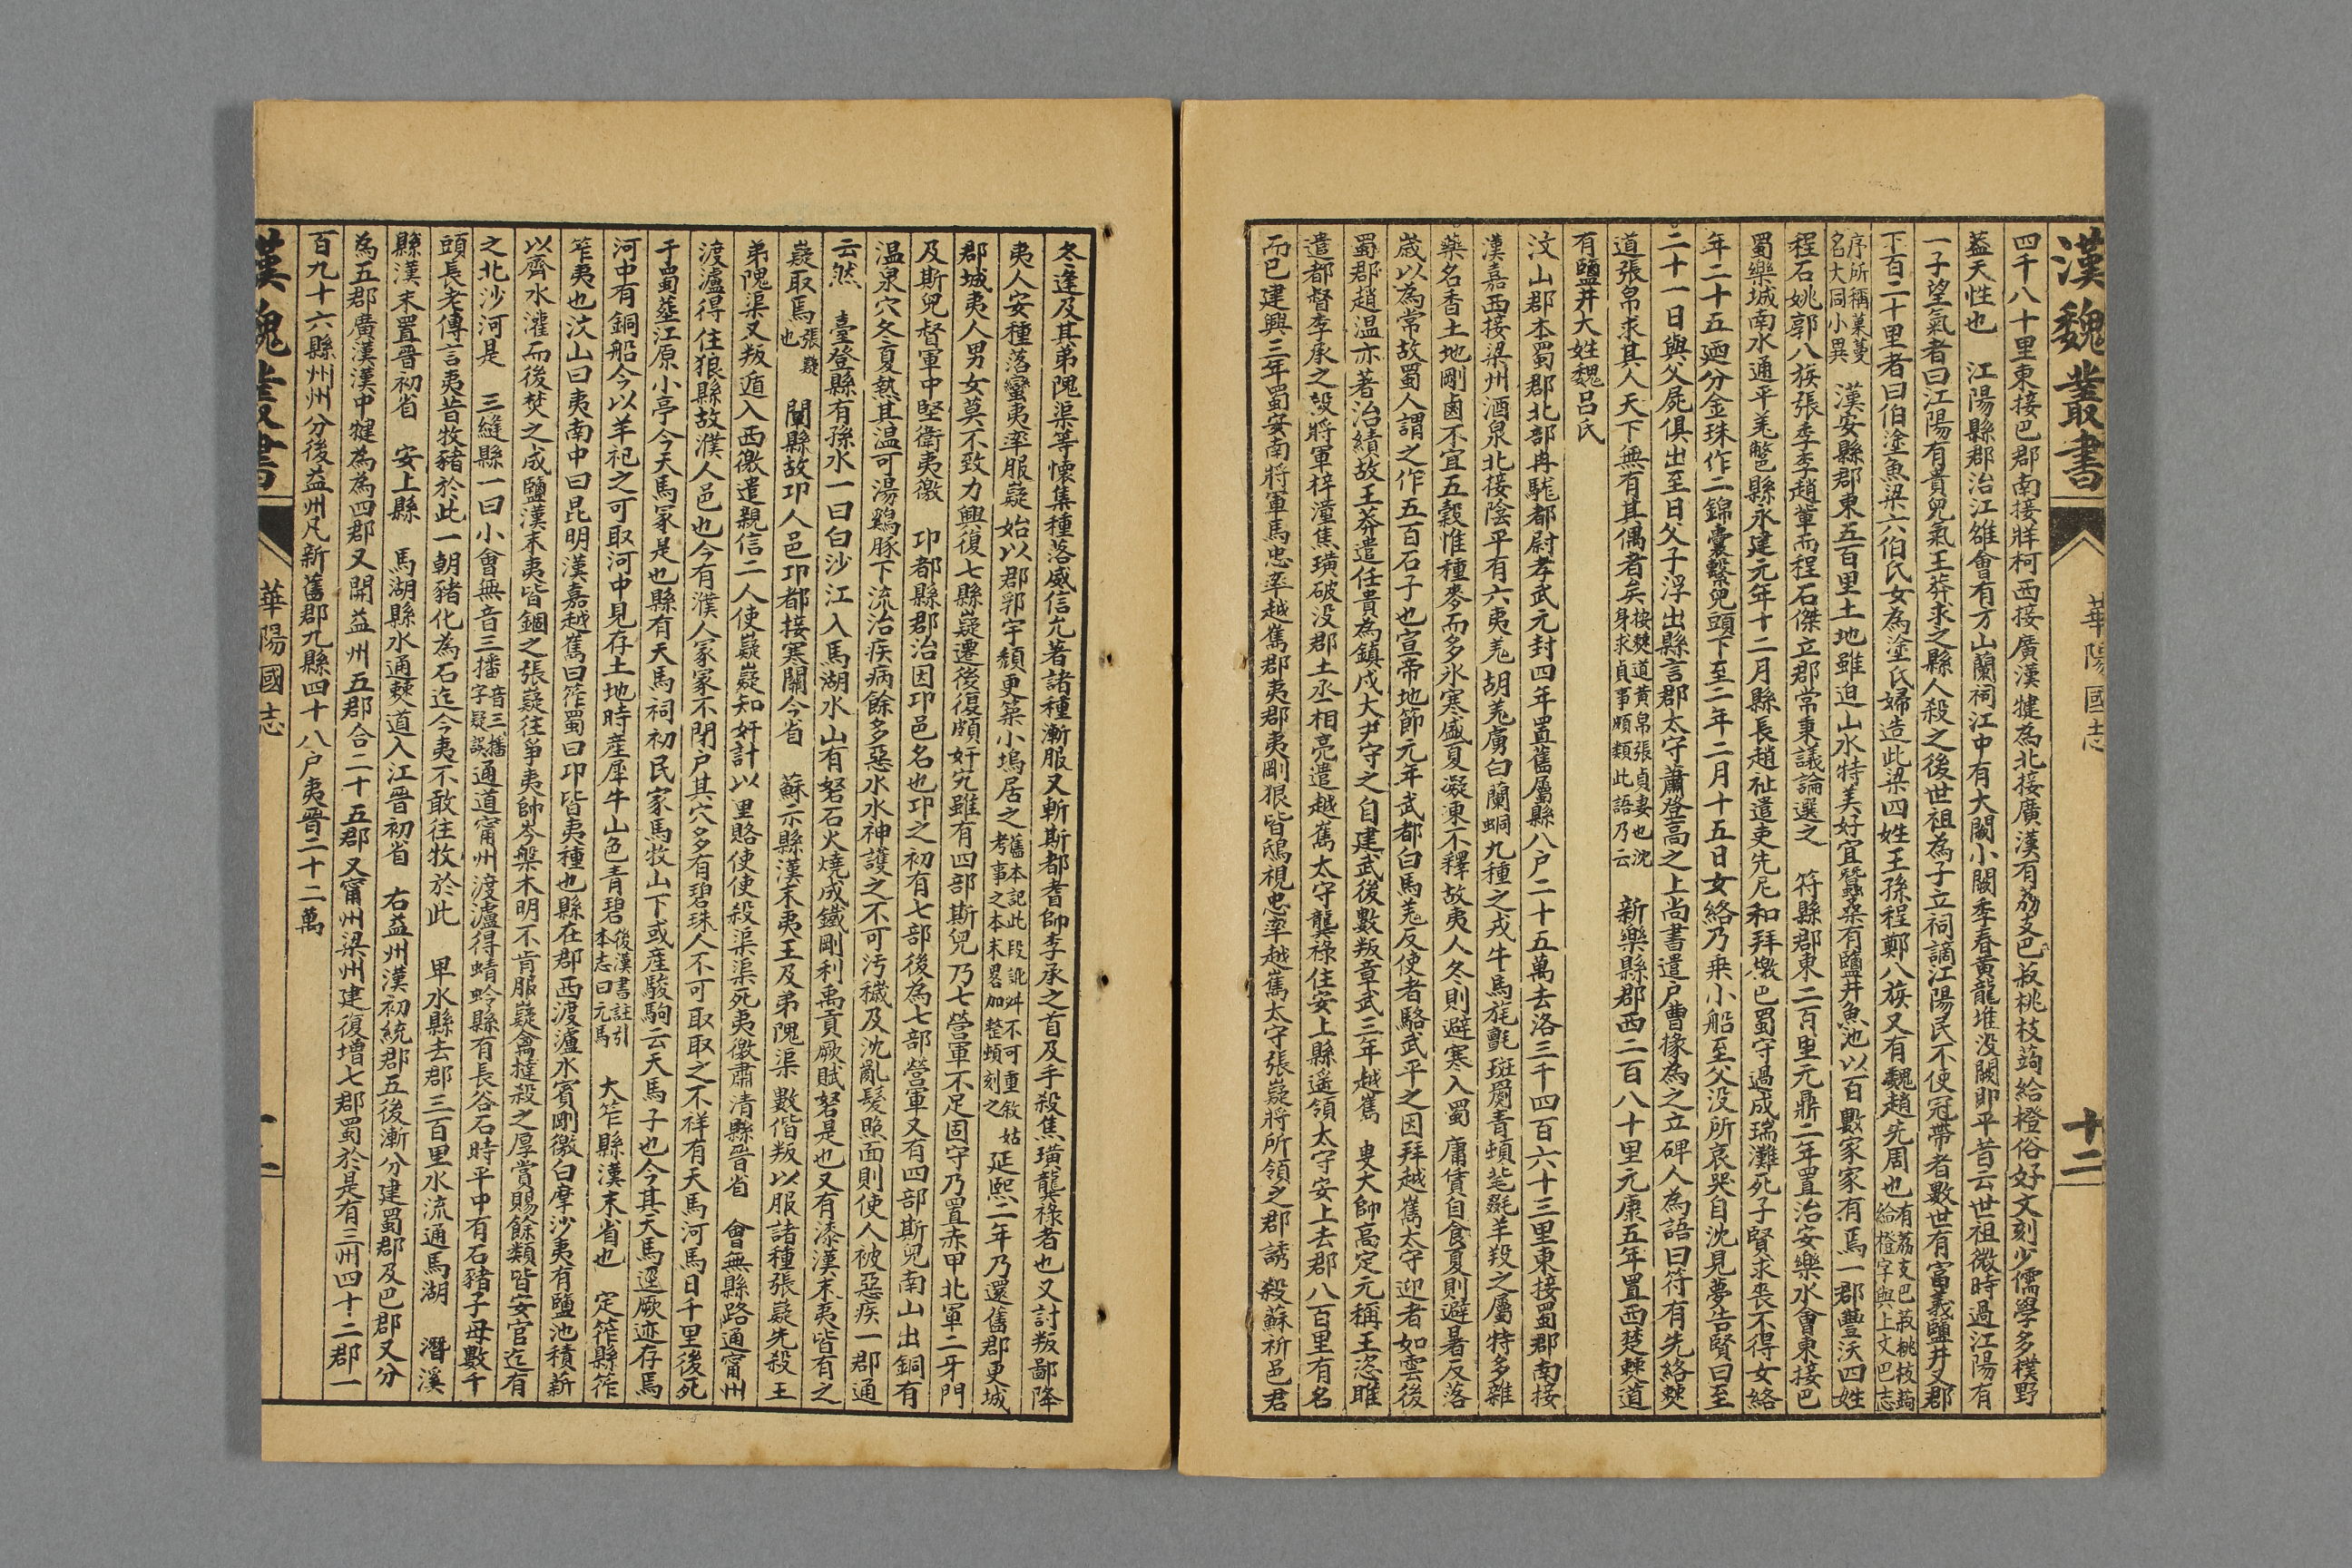 漢魏叢書 華陽國志 十二
四千八十里東接巴郡南接牂柯西接廣漢犍為北接廣漢有荔支巴菽桃枝蒟給橙俗好文刻少儒學多樸野
蓋天性也 江陽縣郡治江雒會有方山蘭祠江中有大闕小闕季春黃龍堆没闕即平昔云世祖微時過江陽有
一子望氣者曰江陽有貴兒氣王莽求之縣人殺之後世祖為子立祠謫江陽民不使冠帶者數世有富義鹽井又郡
下百二十里者曰伯塗魚梁六伯氏女為塗氏婦造此梁四姓王孫程鄭八族又有魏趙先周也有荔支巴菽桃枝蒟給橙字與上文巴志
序所稱菓蔓名大同小異 漢安縣郡東五百里土地雖迫山水特美好宜蠶桑有鹽井魚池以百數家家有焉一郡豐沃四姓
程石姚郭八族張季李趙輩而程石傑立郡常秉議論選之 符縣郡東二百里元鼎二年置治安樂水會東接巴
蜀樂城南水通平羌鄨縣永建元年十二月縣長趙祉遣吏先尼和拜檄巴蜀守過成瑞灘死子賢求喪不得女絡
年二十五廼分金珠作二錦囊繫兒頭下至二年二月十五日女絡乃乗小船至父没所哀哭自沈見夢告賢曰至
二十一日與父屍俱出至日父子浮出縣言郡太守蕭登高之上尚書遣户曹掾為之立碑人為語曰符有先絡僰
道張帛求其人天下無有其偶者矣按僰道黃帛張貞妻也沈身求貞事頗類此語乃云 新樂縣郡西二百八十里元康五年置西楚僰道
有鹽井大姓魏吕氏
汶山郡本蜀郡北部冉駹都尉孝武元封四年置舊屬縣八户二十五萬去洛三千四百六十三里東接蜀郡南接
漢嘉西接梁州酒泉北接陰平有六夷羌胡羌虜白蘭蜩九種之戎牛馬旄氈斑罽青頓毞毲羊羖之屬特多雜
藥名香土地剛鹵不宜五穀惟種麥而多氷寒盛夏凝凍不釋故夷人冬則避寒入蜀庸賃自食夏則避暑反落
歲以為常故蜀人謂之作五百石子也宣帝地節元年武都白馬羌反使者駱武平之因拜越嶲太守迎者如雲後
蜀郡趙温亦著治績故王莽遣任貴為鎮戌大尹守之自建武後數叛章武三年越嶲 叟大帥高定元稱王恣睢
遣都督李承之殺將軍梓潼焦璜破没郡土丞相亮遣越嶲太守龔祿住安上縣遙領太守安上去郡八百里有名
而已建興三年蜀安南將軍馬忠率越嶲郡夷郡夷剛狠皆鴟視忠率越嶲太守張嶷將所領之郡誘殺蘇祈邑君
冬逢及其弟隗渠等懷集種落威信允著諸種漸服又斬斯都耆帥李承之首及手殺焦璜龔祿者也又討叛鄙降
夷人安種落蠻夷率服嶷始以郡郛宇頽更築小塢居之舊本記此段訛舛不可重敘姑考事之本末畧加整頓刻之延熙二年乃還舊郡更城
郡城夷人男女莫不致力興復七縣嶷遷後復頗奸宄雖有四部斯兒乃七營軍不足固守乃置赤甲北軍二牙門
及斯兒督軍中堅衛夷徼 邛都縣郡治因邛邑名也邛之初有七部後為七部營軍又有四部斯兒南山出銅有
温泉穴冬夏熱其温可湯鷄豚下流治疾病餘多惡水水神護之不可汚穢及沈亂髮照面則使人被惡疾一郡通
云然 臺登縣有孫水一曰白沙江入馬湖水山有砮石火燒成鐵剛利禹貢厥賦砮是也又有漆漢末夷皆有之
嶷取焉張嶷也 闌縣故邛人邑邛都接寒關今省 蘇示縣漢末夷王及弟隗渠數偕叛以服諸種張嶷先殺王
弟隗渠又叛遁入西徼遣親信二人使嶷嶷知奸計以里賂使使殺渠渠死夷徼肅清縣晉省 會無縣路通甯州
渡瀘得住狼縣故濮人邑也今有濮人冢冢不閉户其穴多有碧珠人不可取取之不祥有天馬河馬日千里後死
于蜀葬江原小亭今天馬冢是也縣有天馬祠初民家馬牧山下或産駿駒云天馬子也今其天馬逕厥迹存焉
河中有銅船今以羊祀之可取河中見存土地時産犀牛山色青碧後漢書註引本志曰元馬 大笮縣漢末省也 定笮縣笮
笮夷也汶山曰夷南中曰昆明漢嘉越嶲曰笮蜀曰邛皆夷種也縣在郡西渡瀘水賓剛徼白摩沙夷有鹽池積薪
以齊水灌而後焚之成鹽漢末夷皆錮之張嶷往爭夷帥岑槃木明不肯服嶷禽撻殺之厚賞賜餘類皆安官迄有
之北沙河是 三縫縣一曰小會無音三播音三播字疑誤通道甯州渡瀘得蜻蛉縣有長谷石時平中有石豬子母數千
頭長老傳言夷昔牧豬於此一朝豬化為石迄今夷不敢往牧於此 卑水縣去郡三百里水流通馬湖 潛溪
縣漢末置晉初省 安上縣 馬湖縣水通僰道入江晉初省 右益州漢初統郡五後漸分建蜀郡及巴郡又分
為五郡廣漢漢中犍為為四郡又開益州五郡合二十五郡又甯州梁州建復增七郡蜀於是有三州四十二郡一
百九十六縣州州分後益州凡新舊郡九縣四十八户夷晉二十二萬
漢魏叢書 華陽國志